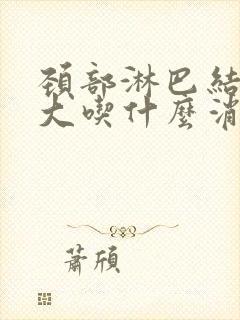 頚部淋巴結
大喫什麼消
蕭頎